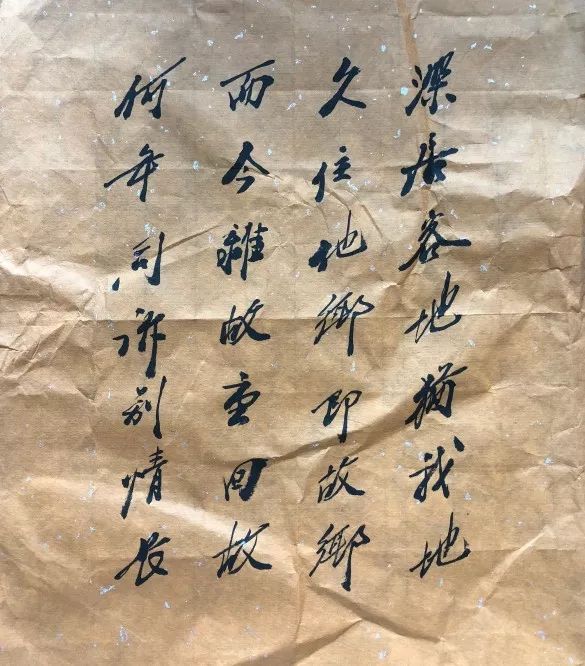 深居客地猶我地
久住他鄉即故鄉
而今離故重回故
何年同訴别情长